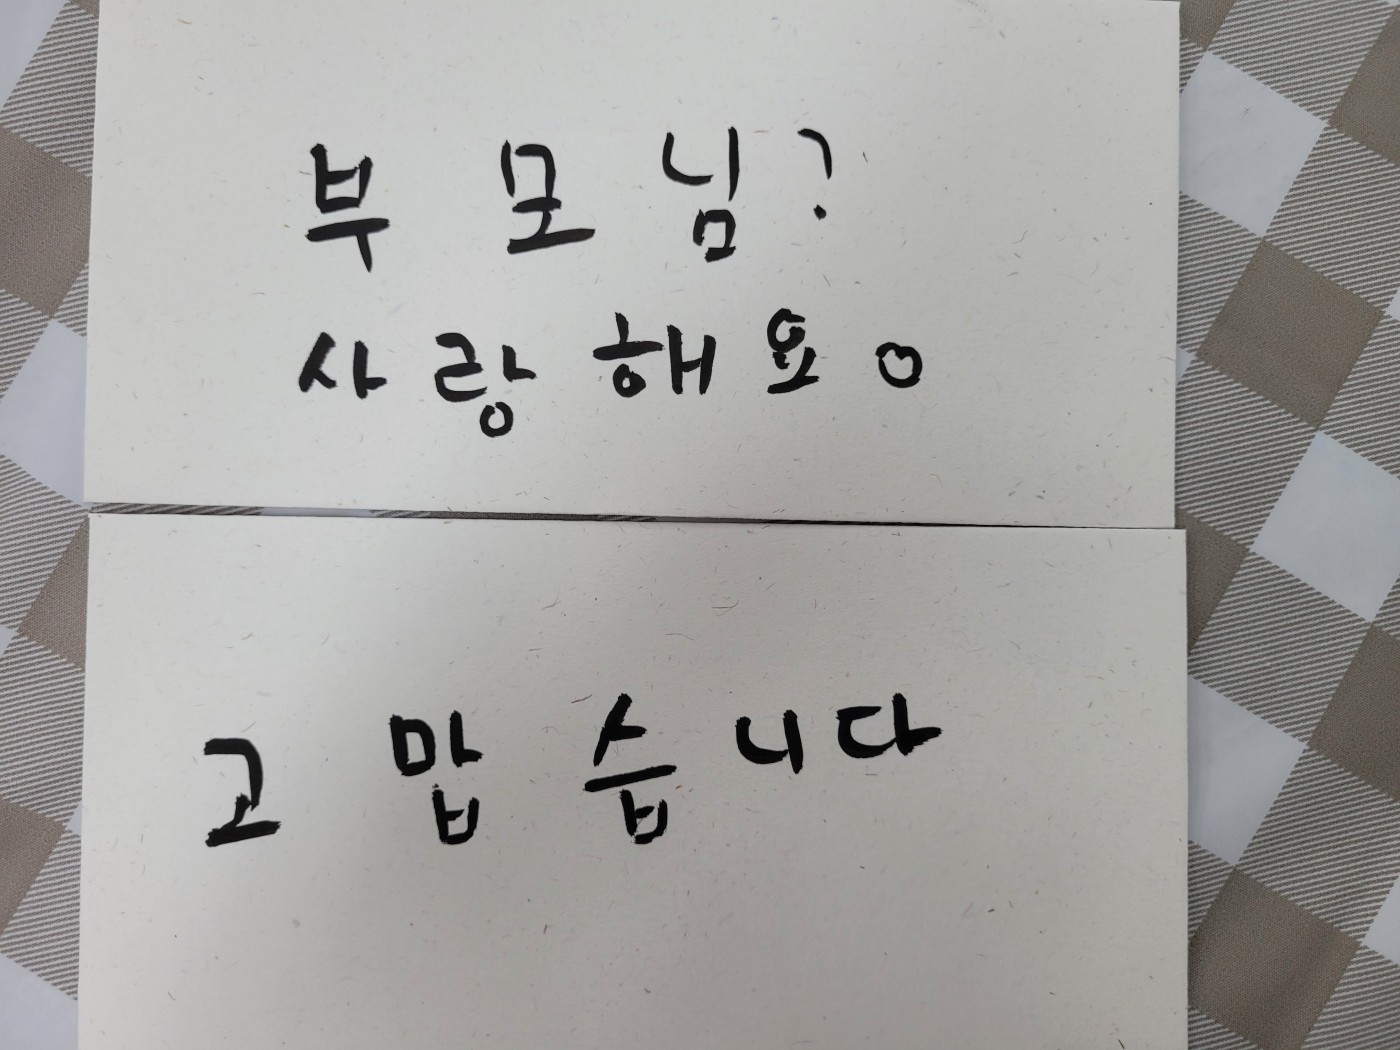 부모님?
사랑해요。
고맙습니다